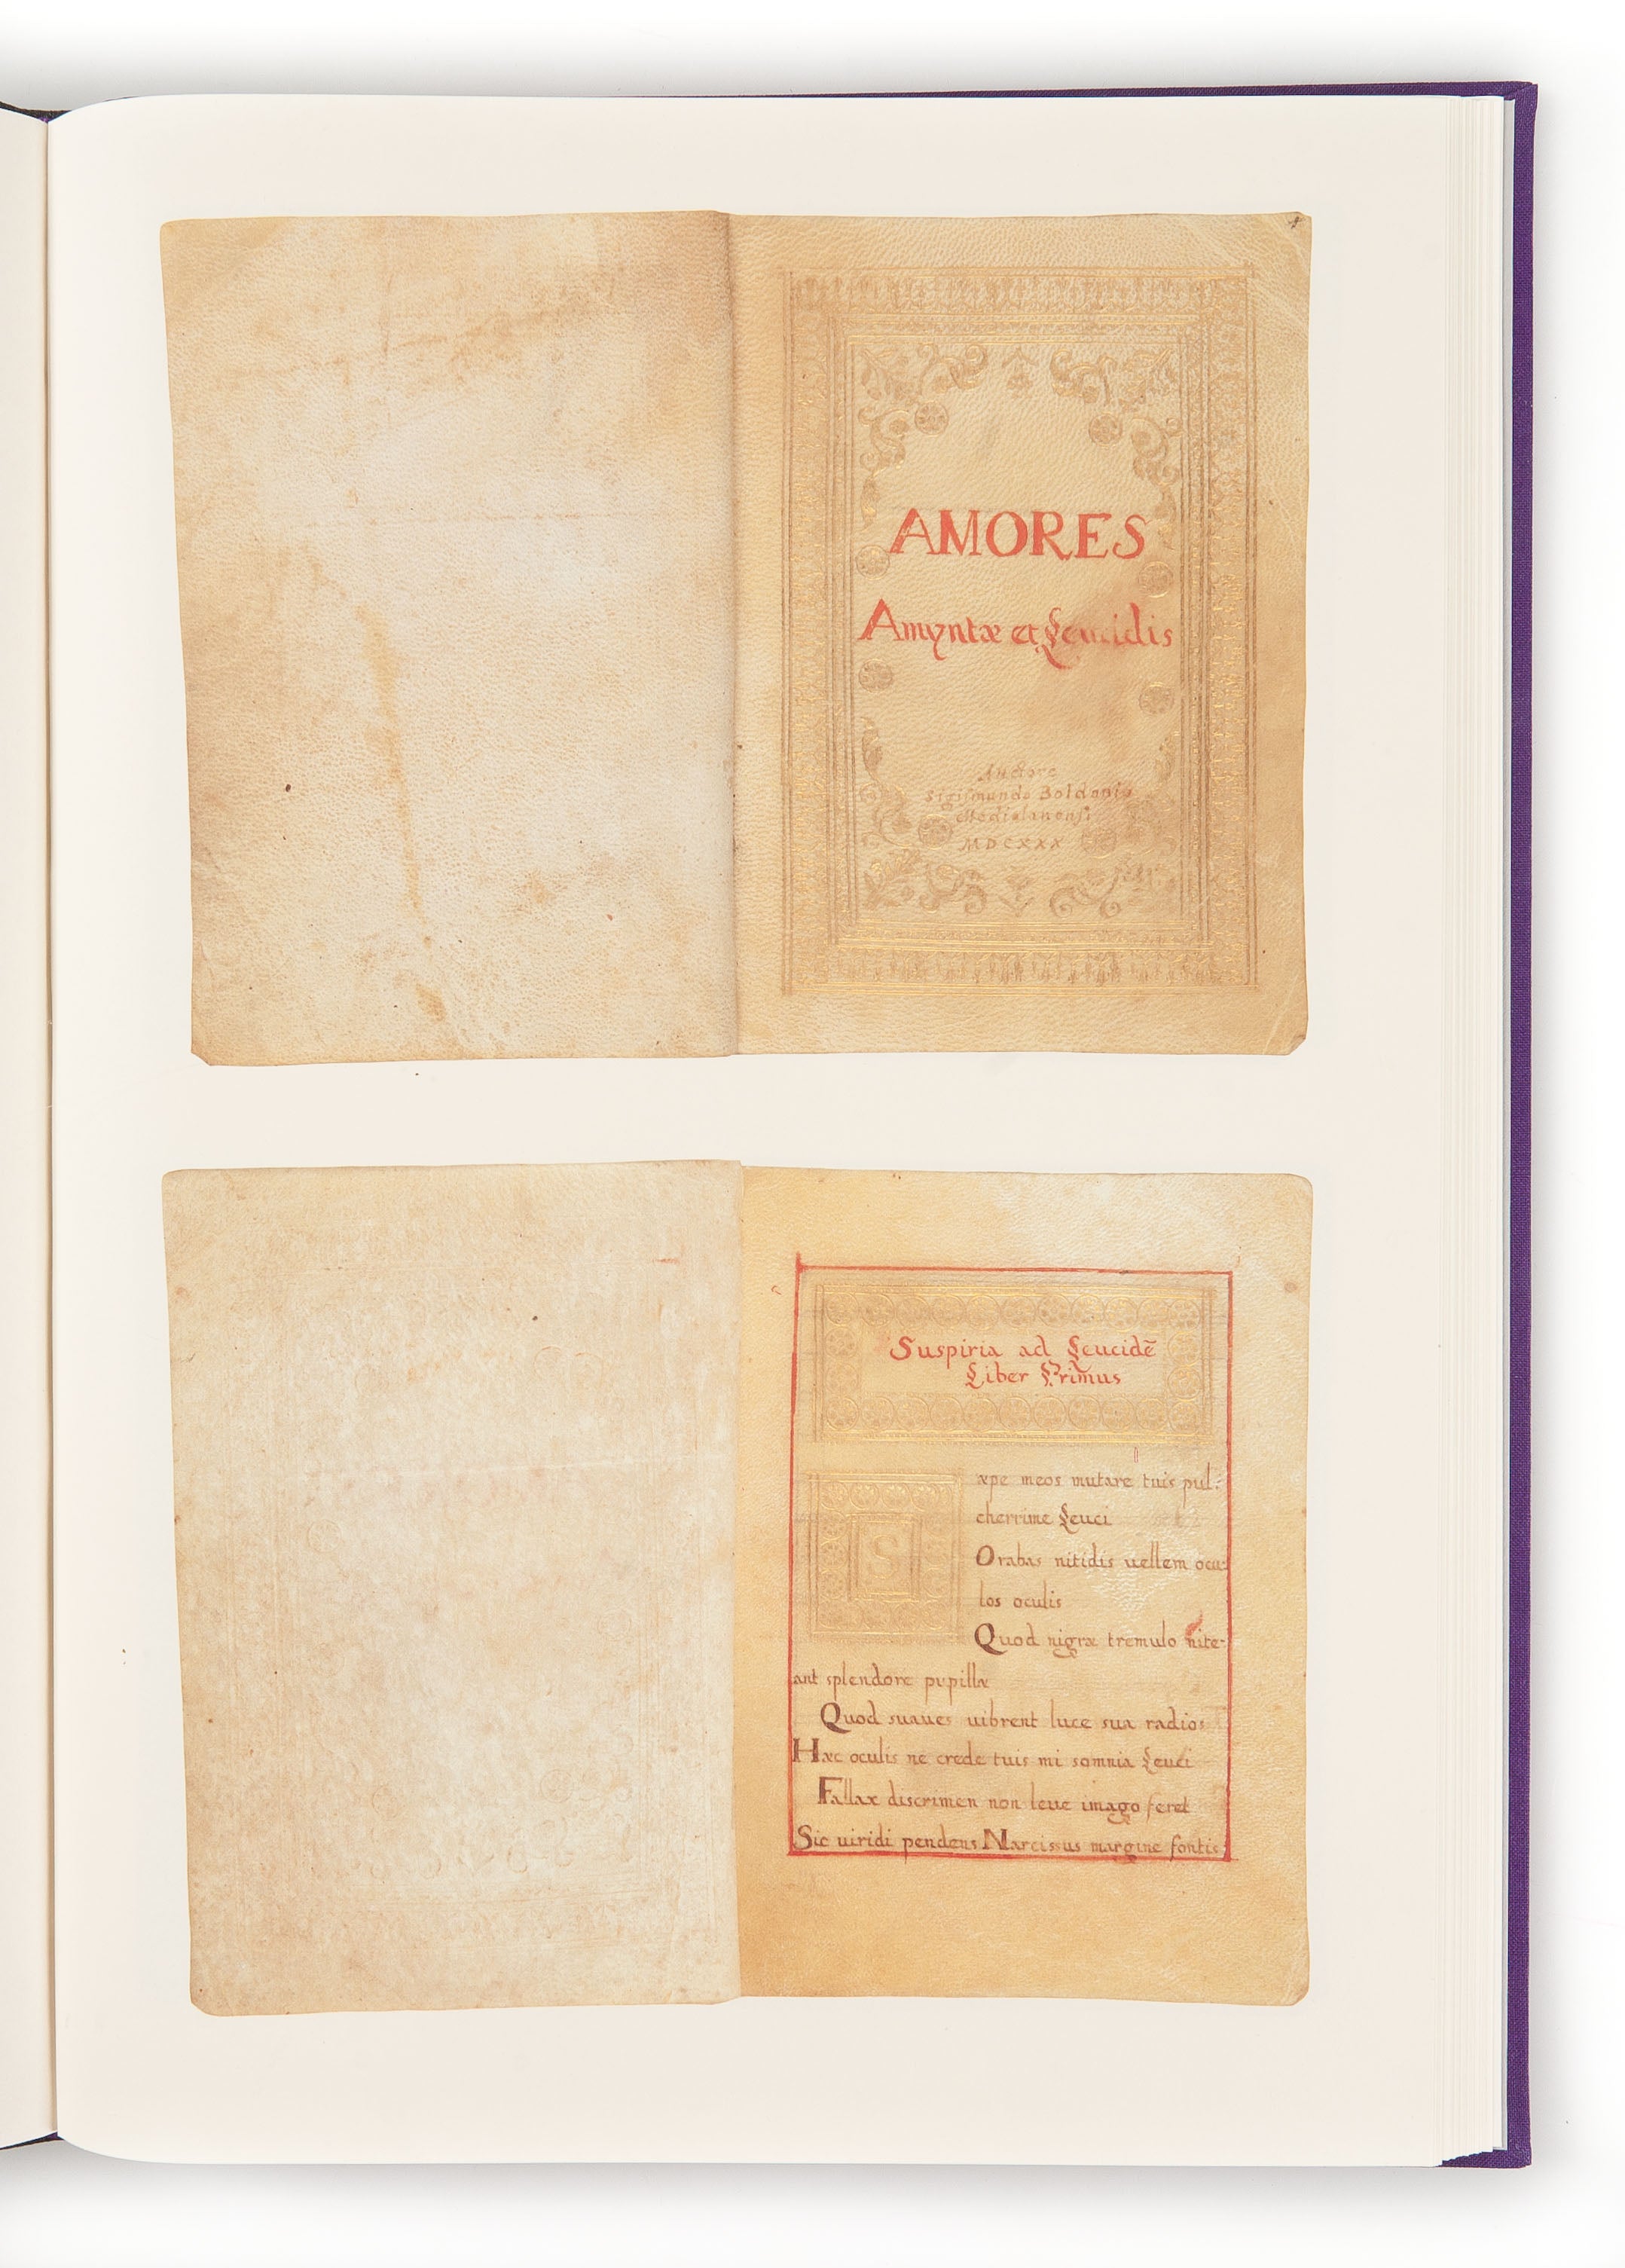 AMORES
Amyntæ et Leucidis
Auctore
Sigismundo Boldonio
Mediolanensi
MDCXXX
Suspiria ad Leucidē
Liber Primus
S
æpe meos mutare tuis pul:
cherrime Leuci
Orabas nitidis uellem ocu:
los oculis
Quod nigræ tremulo nite-
ant splendore pupillæ
Quod suaues uibrent luce sua radios
Hæc oculis ne crede tuis mi somnia Leuci
Fallax discrimen non leue imago feret
Sic uiridi pendens Narcissus margine fontis